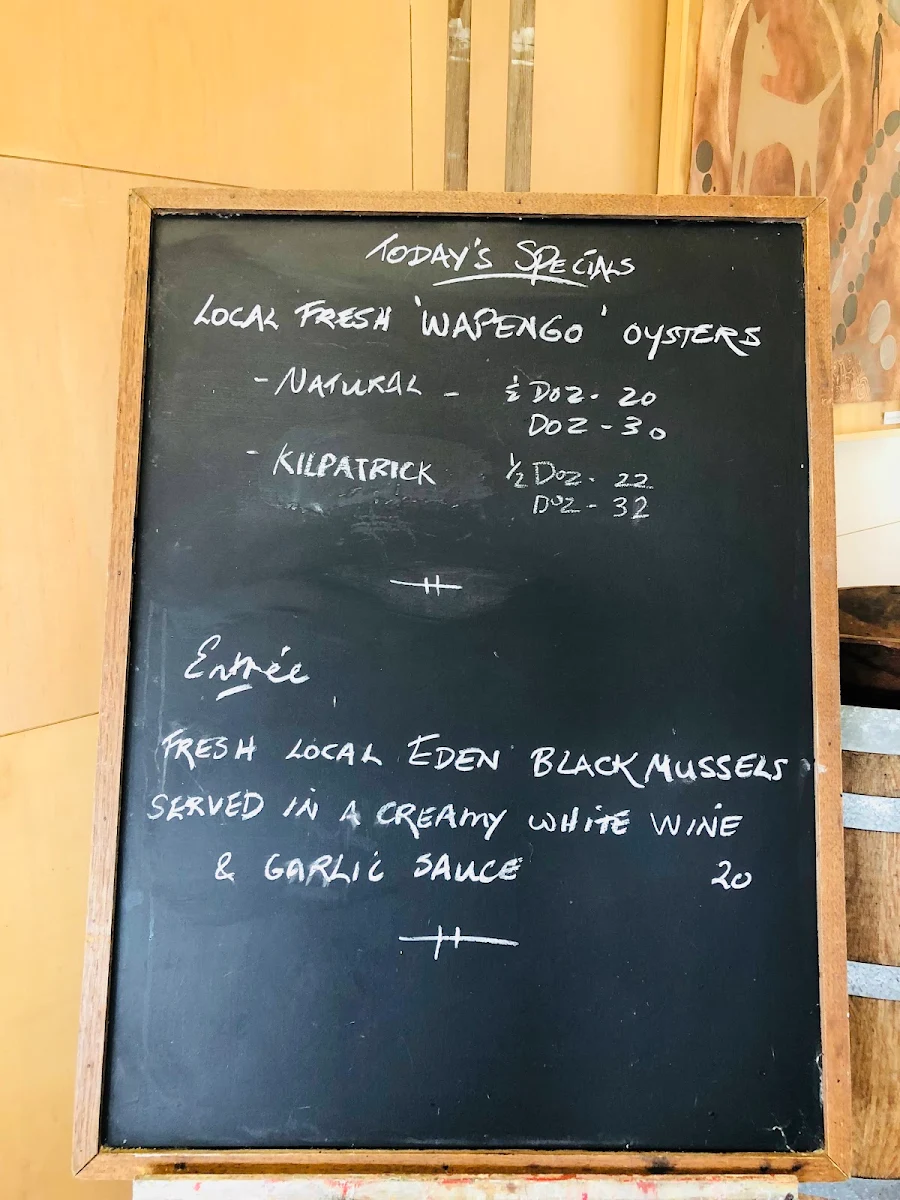 TODAY'S SPECIALS
LOCAL FRESH 'WAPENGO' OYSTERS
- NATURAL - ½ DOZ - 20
DOZ - 30
- KILPATRICK ½ DOZ - 22
DOZ - 32
Entrée
FRESH LOCAL EDEN BLACK MUSSELS
SERVED IN A CREAMY WHITE WINE
& GARLIC SAUCE 20